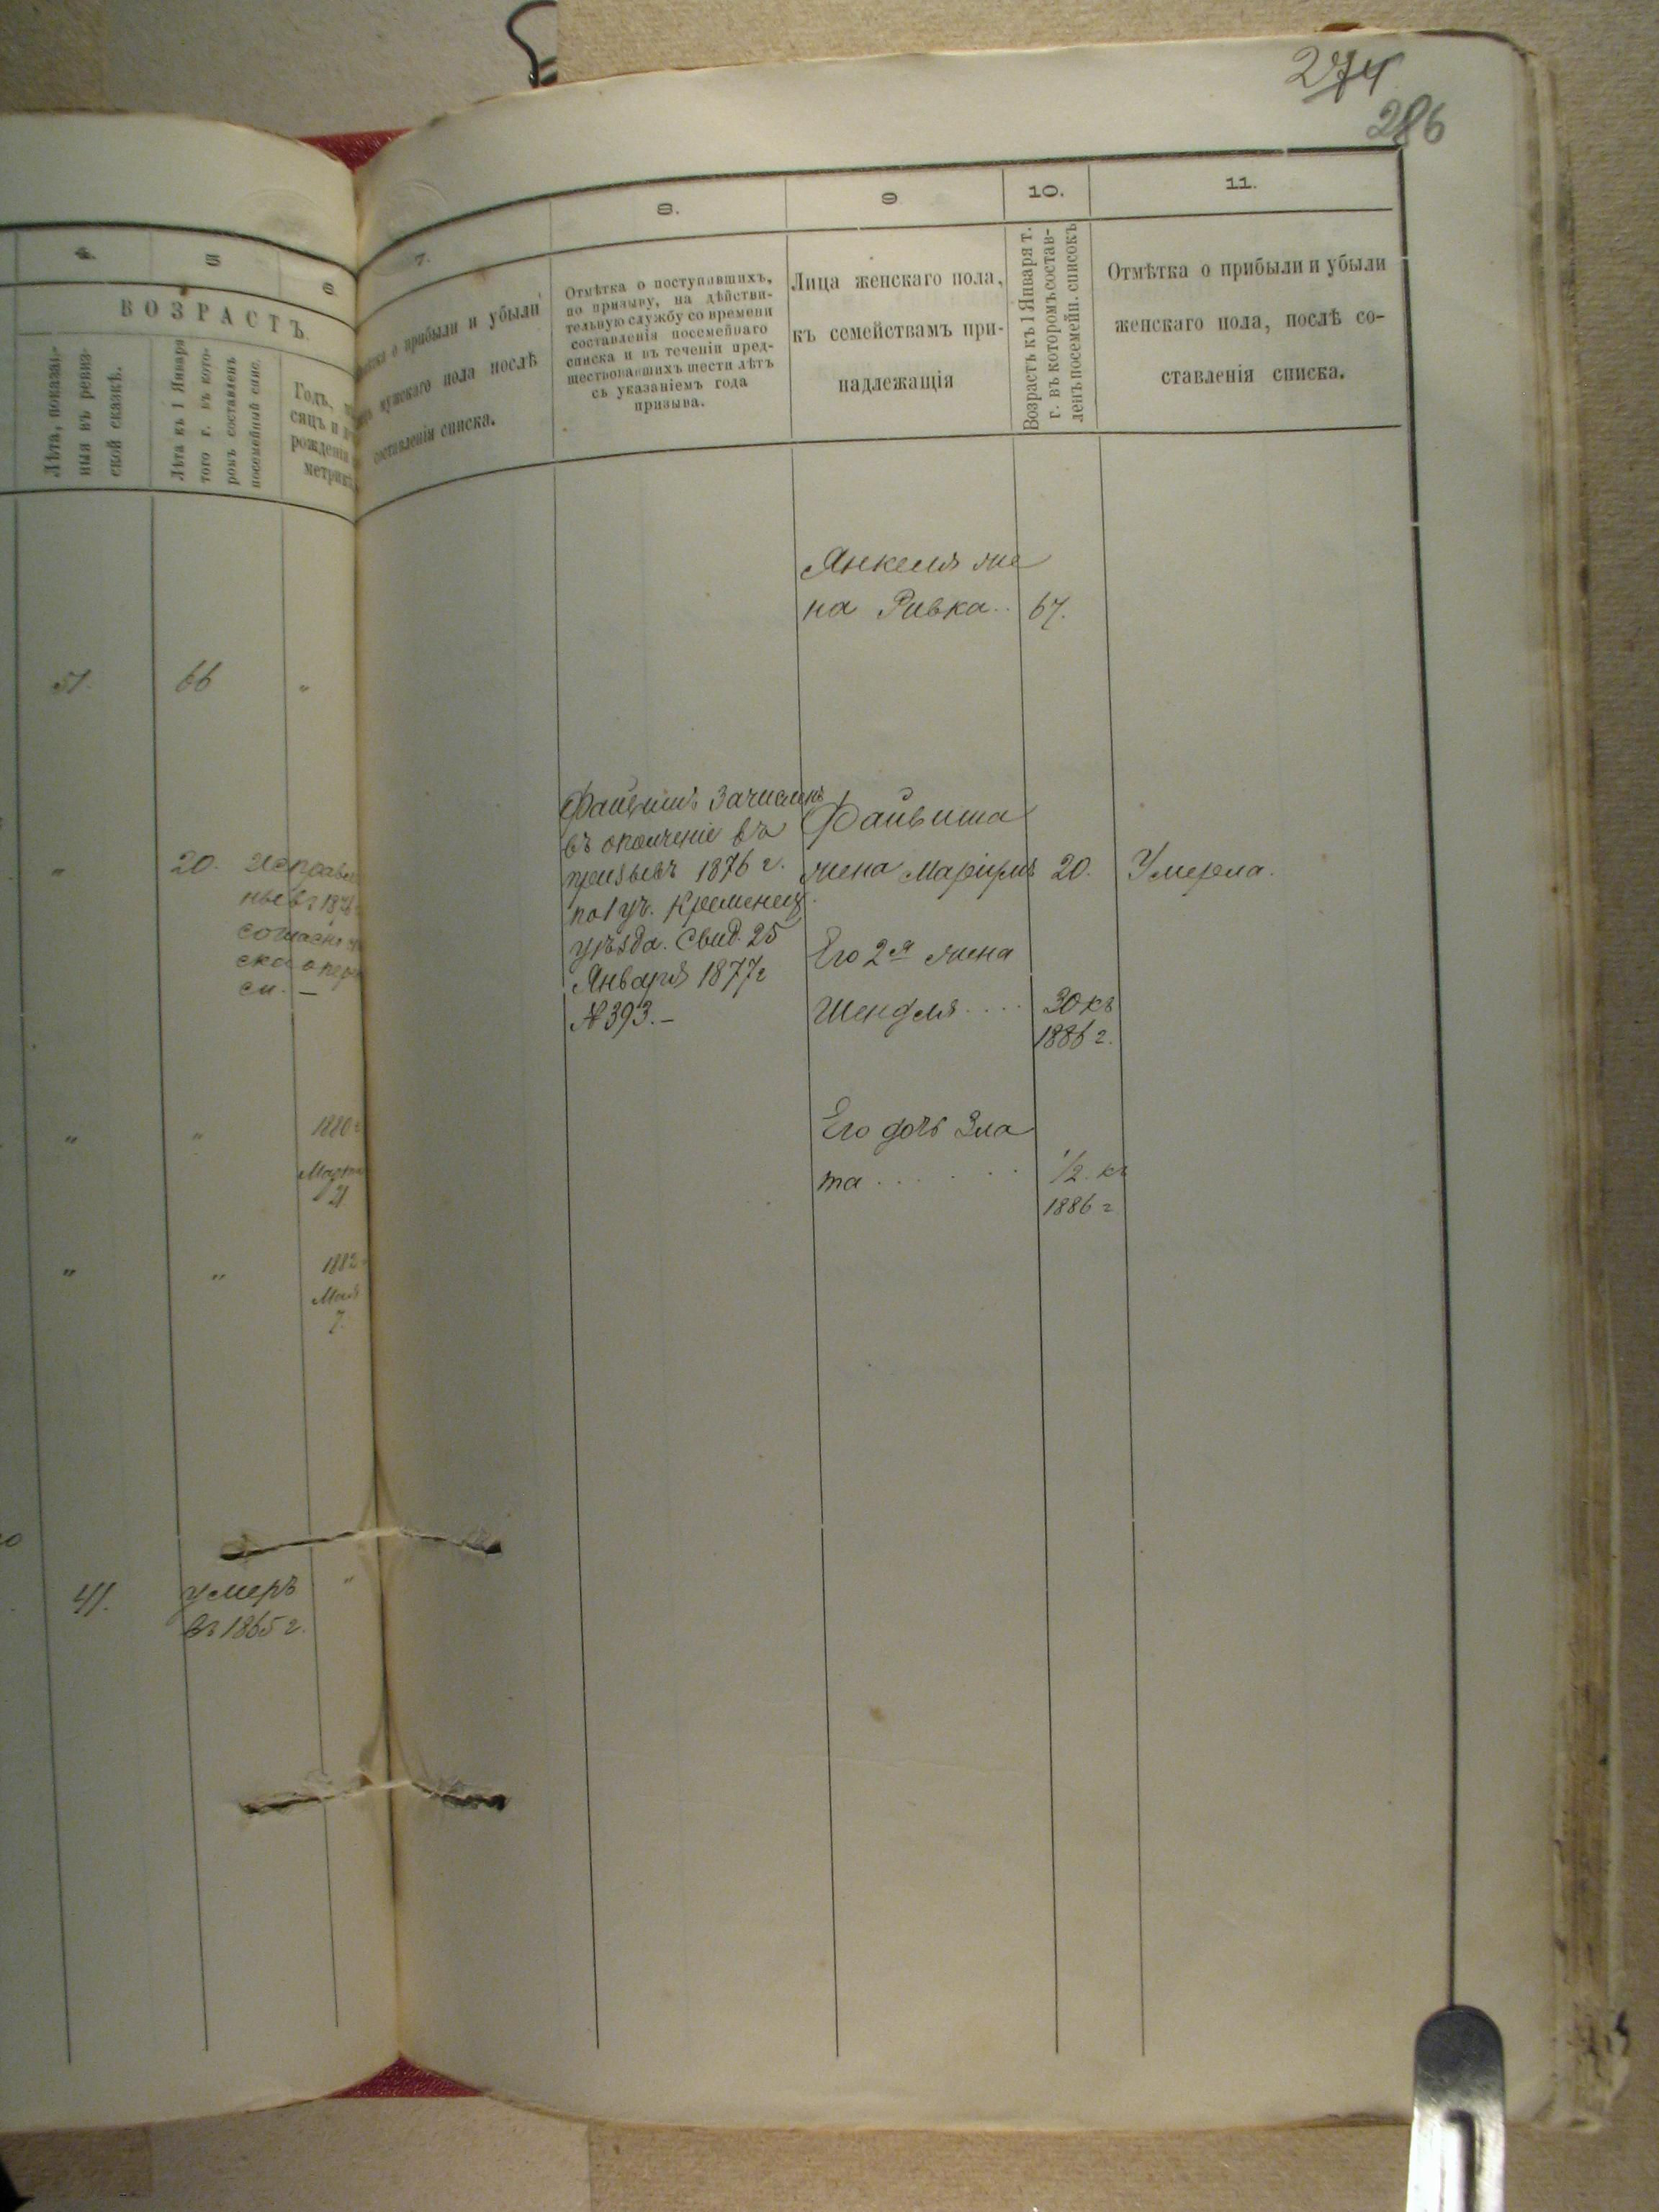 274
286
4.
5
6
ВОЗРАСТЪ.
Лѣта, показан-
ныя въ ревиз-
ской сказкѣ.
Лѣта къ 1 Января
того г. въ кото-
ромъ составленъ
посемейный спис.
Годъ,
сяцъ и
рожденія
метрик
51.
66
"
"
20.
Исправл
1876
согласно
см. —
"
"
1880 г
Марта
21
"
"
1882
Мая
7.
41.
умеръ
въ 1865 г.
"
7.
о прибыли и убыли
мужскаго пола послѣ
составленія списка.
8.
Отмѣтка о поступавшихъ,
по призыву, на дѣйстви-
тельную службу со времени
составленія посемейнаго
списка и въ теченіи пред-
шествовавшихъ шести лѣтъ
съ указаніемъ года
призыва.
Файвишъ зачисленъ
въ ополченіе въ
призывъ 1876 г.
по 1 уч. Кременец.
уѣзда. Свид. 25
Января 1877 г
№ 393.—
9
Лица женскаго пола,
къ семействамъ при-
надлежащія
Янкеля же
на Ривка..
Файвиша
жена Маріумъ
Его 2я жена
Шендля....
Его дочь Зла
та......
10.
Возрастъ къ 1 Января т.
г. въ которомъ состав-
ленъ посемейн. списокъ
67.
20.
30 къ
1886 г.
1/2. къ
1886 г
11.
Отмѣтка о прибыли и убыли
женскаго пола, послѣ со-
ставленія списка.
Умерла.